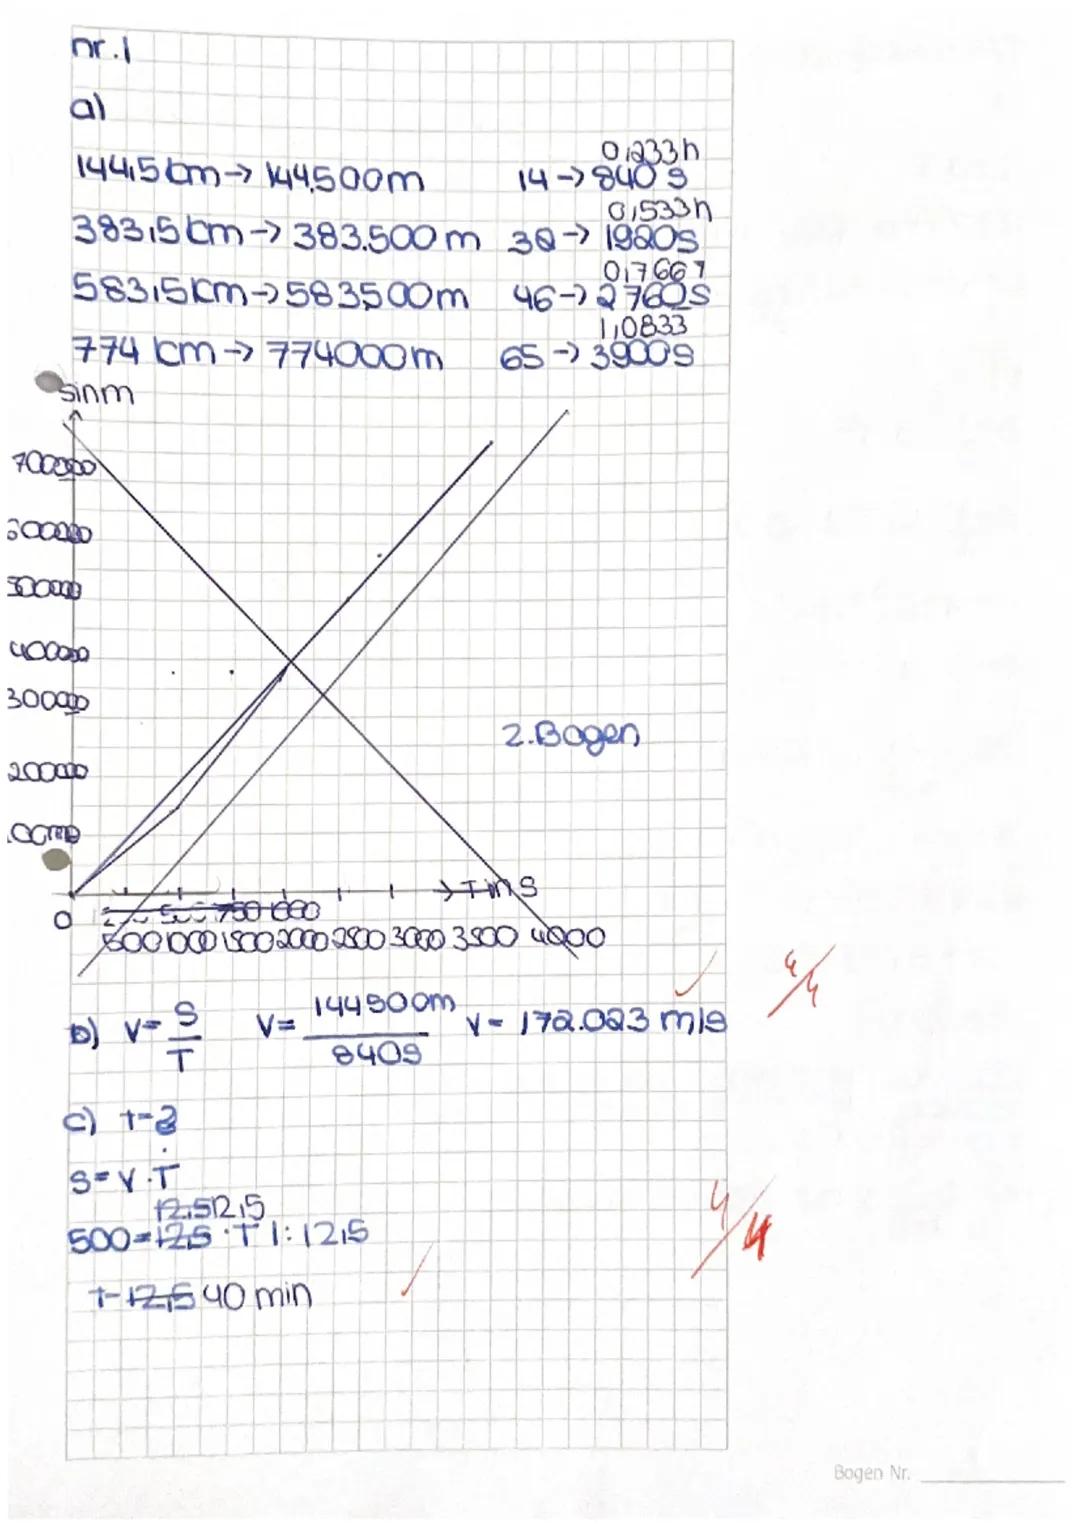 nr.1
a)
144,5 km → 144.500m 14 → 840 s
0,233h
383,5 km → 383.500 m 32 → 1920s
0,533h
583,5 km → 583,500m 46 → 2760s
0,7667
774 km → 774000m 65 → 3900s
1,0833
s in m
700000
600000
500000
400000
300000
200000
100000
2. Bogen
0
→ T in s
750 1000
500 1000 1500 2000 2500 3000 3500 4000
b) V= S/T V= 144500m/840s V= 172.023 m/s
4/4
c)
S=V·T
12,5 12,5
500=12,5 · T |: 12,5
t= 12,5 40 min
4/4
Bogen Nr.